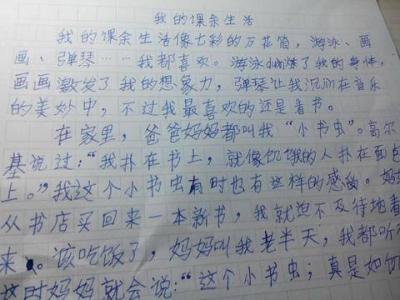 我的课余生活
我的课余生活像七彩的万花筒，游泳、画
画、弹琴……我都喜欢。游泳锻炼了我的身体，
画画激发了我的想象力，弹琴让我沉浸在音乐
的美妙中，不过我最喜欢的还是看书。
在家里，爸爸妈妈都叫我“小书虫”。高尔
基说过：“我扑在书上，就像饥饿的人扑在面包
上。”我这个小书虫有时也有这样的感觉。妈妈
从书店买回来一本新书，我就迫不及待地看
来。该吃饭了，妈妈叫我老半天，我都听
这时妈妈就会说：“这个小书虫；真是如饥